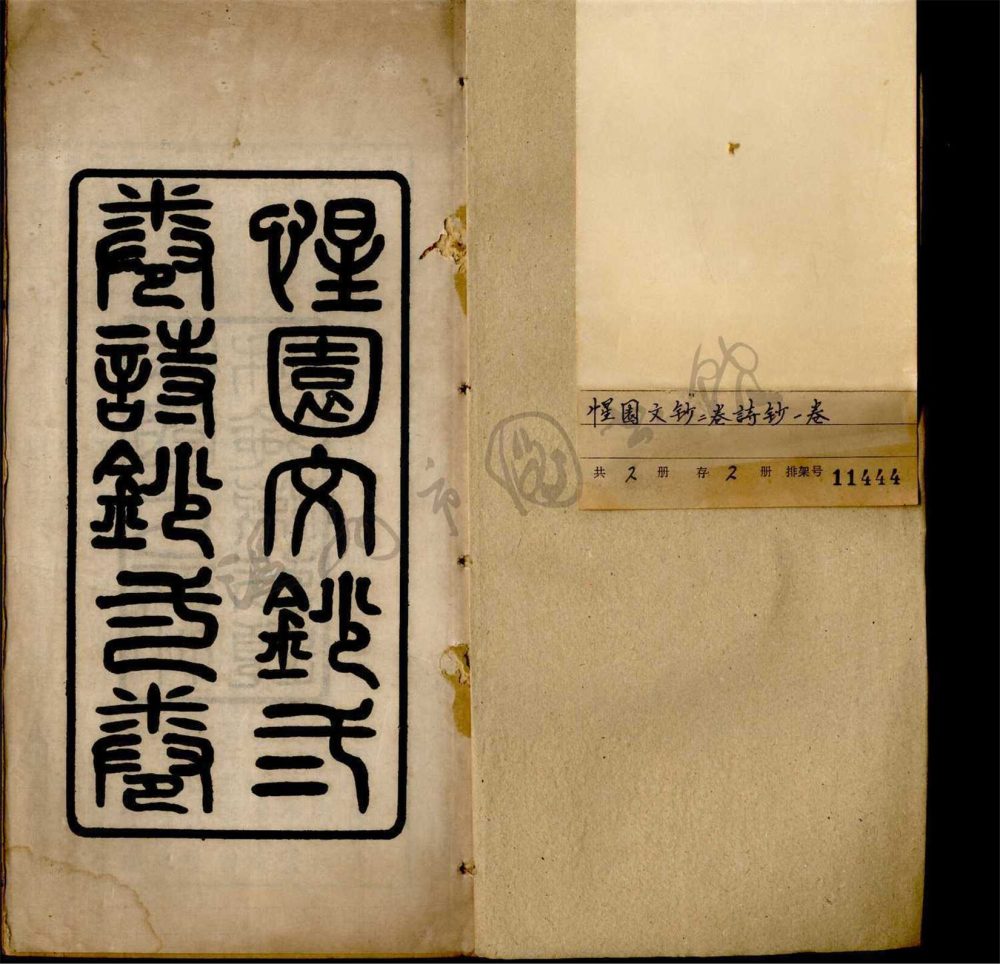 惺園文鈔弍
卷詩鈔弌卷
惺園文钞二卷詩钞一卷
共 2 册 存 2 册 排架号 11444